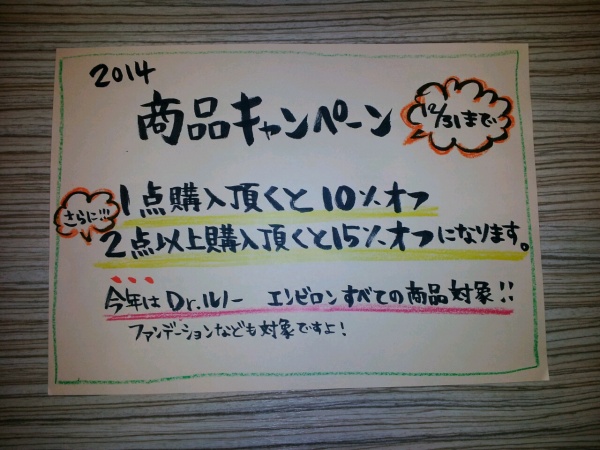 2014
商品キャンペーン
12/31まで
1点購入頂くと10%オフ
さらに!!!
2点以上購入頂くと15%オフになります。
今年はDr.ルノー エンビロンすべての商品対象!!
ファンデーションなども対象ですよ!